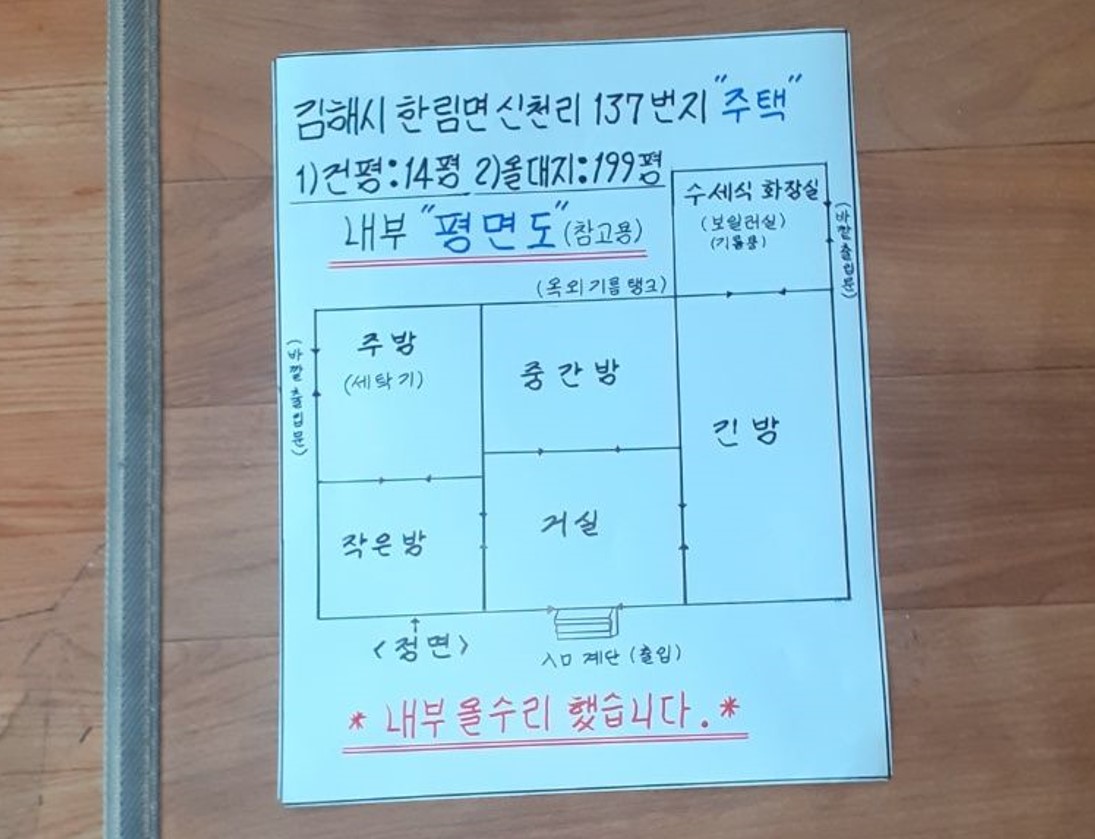 김해시 한림면 신천리 137번지 "주택"
1)건평:14평 2)올대지:199평
내부 "평면도"(참고용)
수세식 화장실
(보일러실)
(기름용)
(바깥출입문)
(옥외기름탱크)
(바깥출입문)
주방
(세탁기)
중간방
긴방
작은방
거실
<정면>
入口 계단 (출입)
* 내부 올수리 했습니다. *